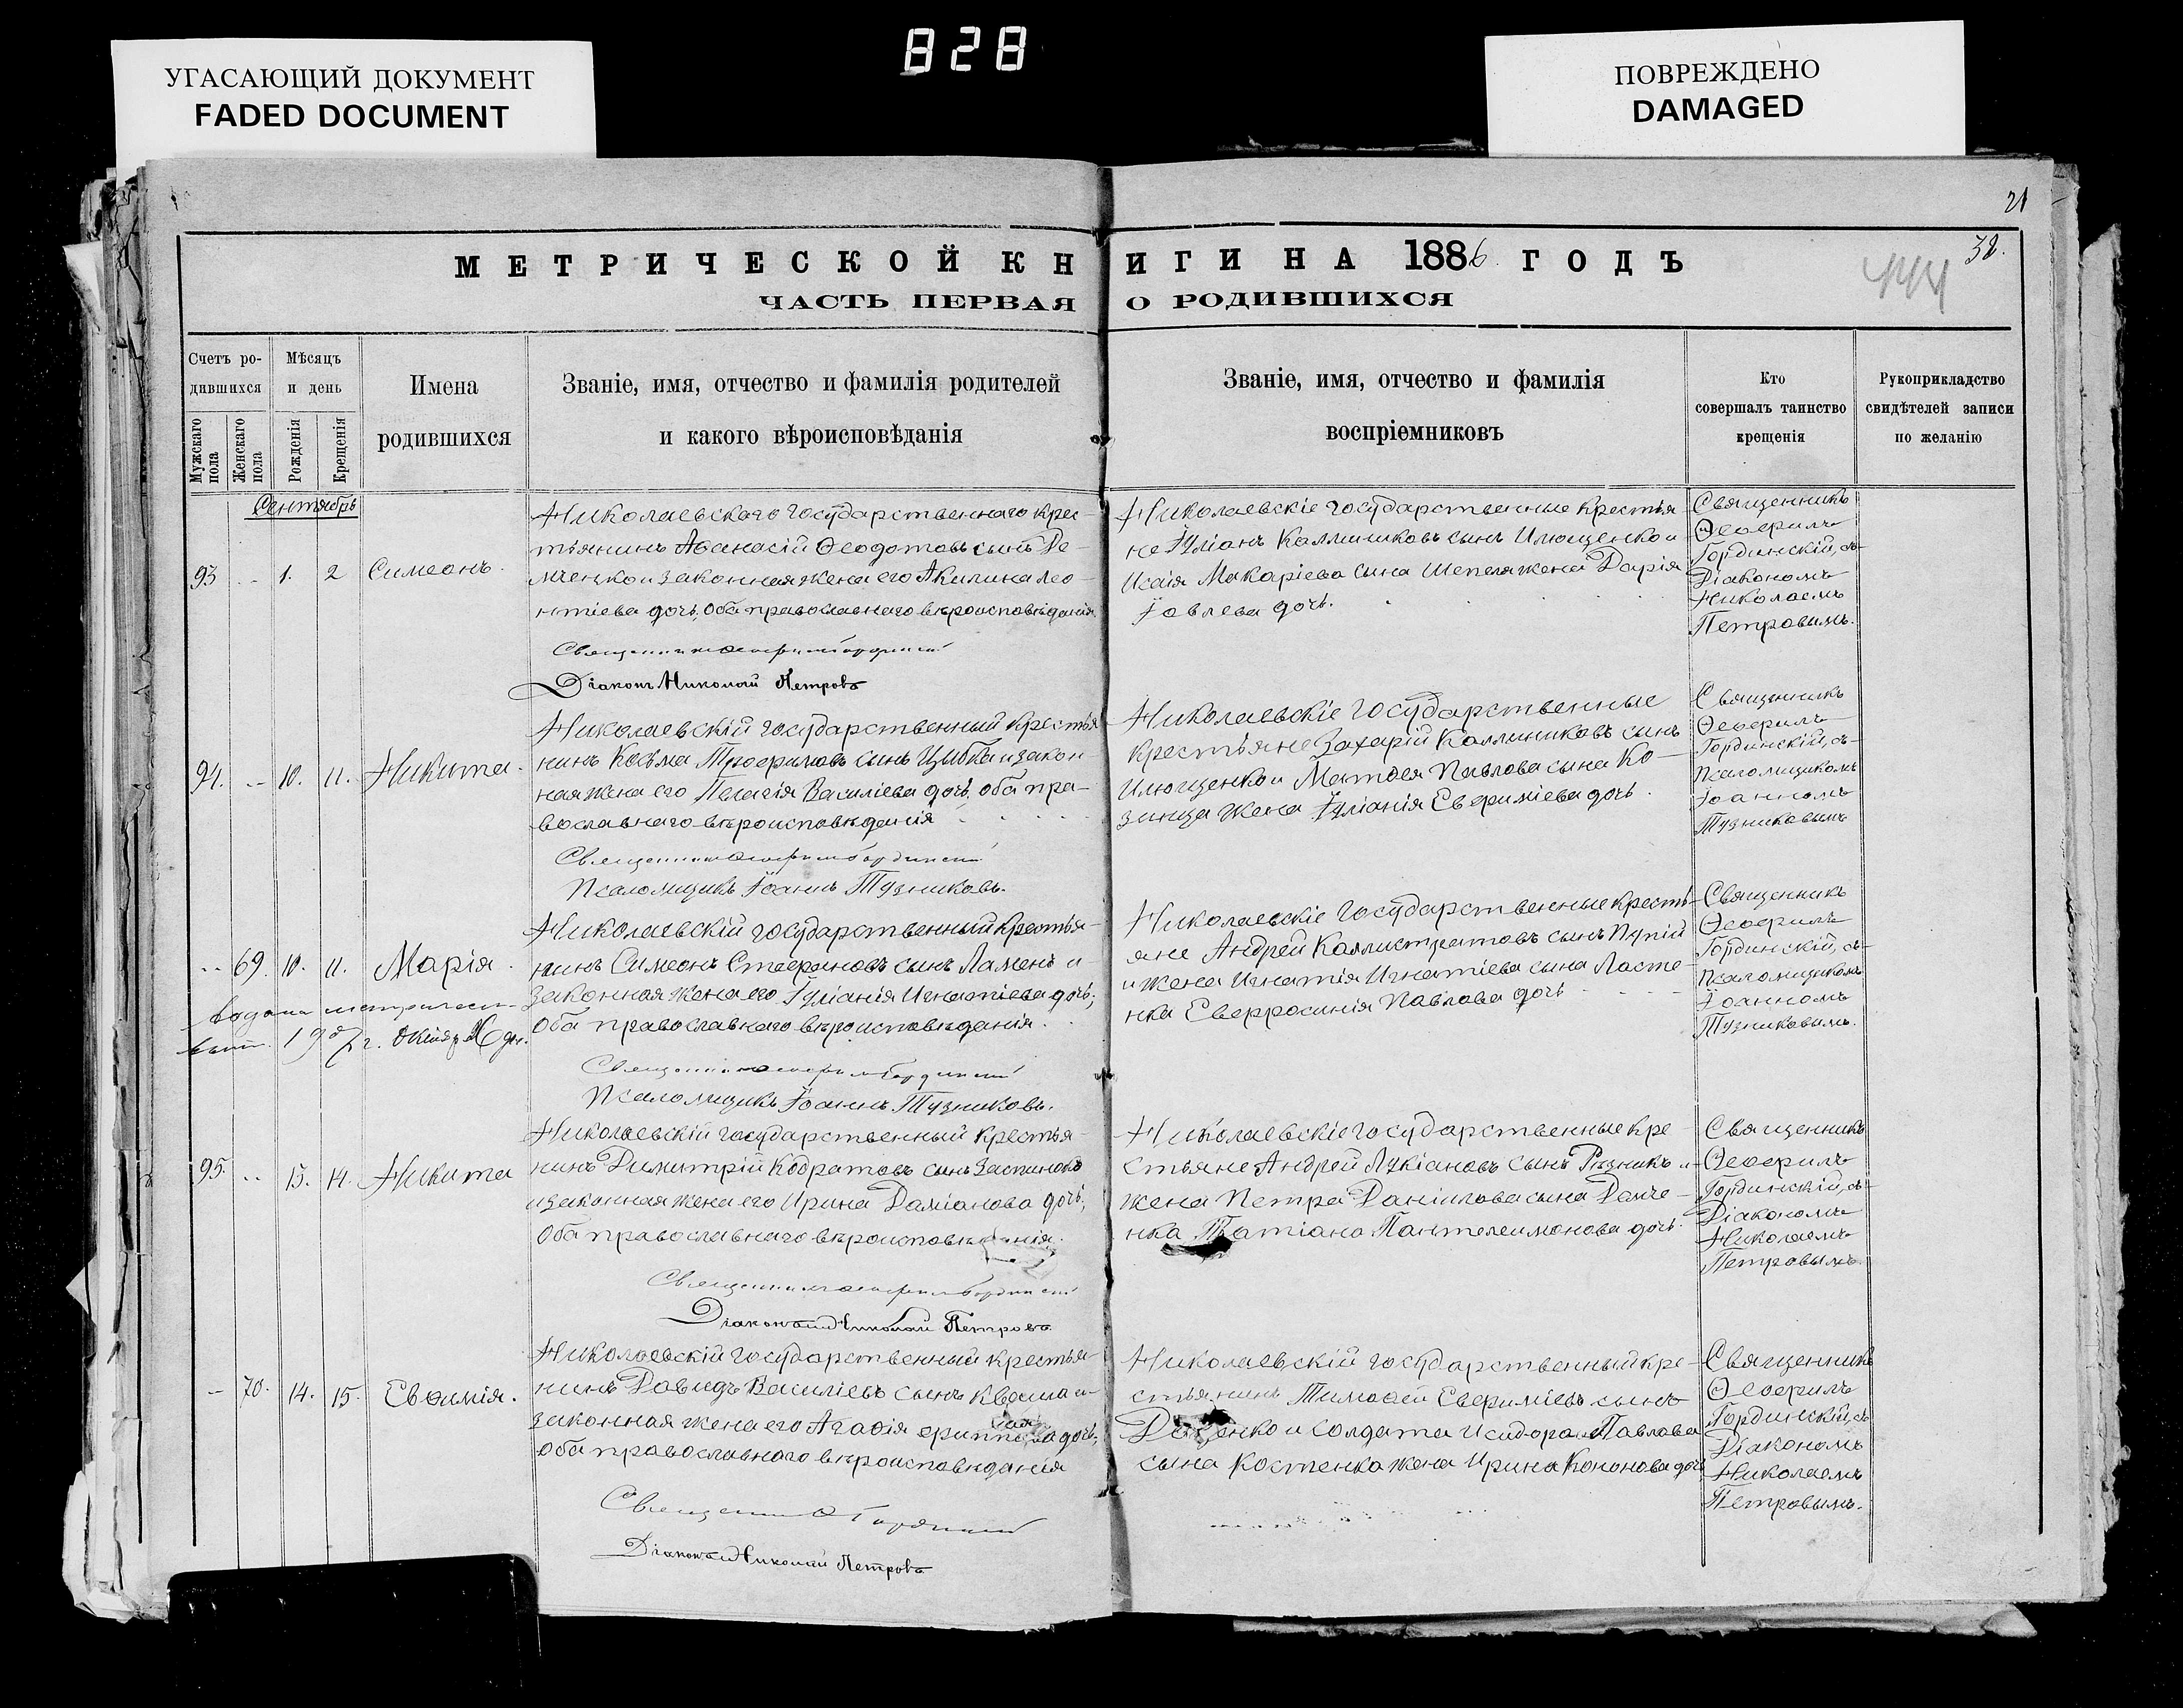 828
УГАСАЮЩИЙ ДОКУМЕНТ
FADED DOCUMENT
ПОВРЕЖДЕНО
DAMAGED
21
32.
444
МЕТРИЧЕСКОЙ КНИГИ НА 1886 ГОДЪ
ЧАСТЬ ПЕРВАЯ О РОДИВШИХСЯ
Счетъ ро-
дившихся
Мужскаго пола
Женскаго пола
Мѣсяцъ
и день
Рожденія
Крещенія
Имена
родившихся
Званіе, имя, отчество и фамилія родителей
и какого вѣроисповѣданія
Званіе, имя, отчество и фамилія
воспріемниковъ
Кто
совершалъ таинство
крещенія
Рукоприкладство
свидѣтелей записи
по желанію
Сентябрь
93 1. 2 Симеонъ.
Николаевскаго государственнаго крес-
тьянинъ Аѳанасій Ѳеодотовъ сынъ Де-
мченко и законная жена его Акилина Лео-
нтіева дочь, оба православнаго вѣроисповѣданія
Діаконъ Николай Петровъ
Николаевскіе государственные крестья-
не Іуліанъ Каллиниковъ сынъ Илющенко и
Исаія Макаріева сына Шепеля жена Дарія
Іовлева дочь.
Священникъ
Ѳеофилъ
Гординскій, съ
Діакономъ
Николаемъ
Петровымъ.
94. 10. 11. Никита.
Николаевскій государственный крестья
нинъ Козма Трофимовъ сынъ Цыбка и закон-
ная жена его Пелагія Василіева дочь, оба пра-
вославнаго вѣроисповѣданія
Псаломщикъ Іоаннъ Тузниковъ.
Николаевскіе государственные
крестьяне Захарій Каллиниковъ сынъ
Илющенко и Матѳея Павлова сына Ко-
зинца жена Іуліанія Евфиміева дочь.
Священникъ
Ѳеофилъ
Гординскій, съ
псаломщикомъ
Іоанномъ
Тузниковымъ
69. 10. 11. Марія.
1907 г. Октября
Николаевскій государственный крестья-
нинъ Симеонъ Стефановъ сынъ Ламень и
законная жена его Іуліанія Игнатіева дочь,
оба православнаго вѣроисповѣданія.
Псаломщикъ Іоаннъ Тузниковъ.
Николаевскіе государственные кресть-
яне Андрей Каллистратовъ сынъ Пупій
и жена Игнатія Игнатіева сына Ласте-
нка Евфросинія Павлова дочь
Священникъ
Ѳеофилъ
Гординскій, съ
псаломщикомъ
Іоанномъ
Тузниковымъ.
95. 13. 14. Никита
Николаевскій государственный крестья-
нинъ Димитрій Кодратовъ сынъ
и законная жена его Ирина Даміанова дочь,
оба православнаго вѣроисповѣданія.
Діаконъ Николай Петровъ
Николаевскіе государственные кре-
стьяне Андрей Лукіановъ сынъ Рѣзникъ и
жена Петра Даніилова сына Данче-
нка Татіана Пантелеимонова дочь.
Священникъ
Ѳеофилъ
Гординскій, съ
Діакономъ
Николаемъ
Петровымъ.
70. 14. 15. Евѳимія.
Николаевскій государственный крестья-
нинъ Давидъ Василіевъ сынъ Кваша и
законная жена его Агаѳія дочь,
оба православнаго вѣроисповѣданія
Діаконъ Николай Петровъ
Николаевскій государственный кре-
стьянинъ Тимоѳей Евфиміевъ сынъ
и солдата Исидора Павлова
сына Костенка жена Ирина Кононова дочь
Священникъ
Ѳеофилъ
Гординскій, съ
Діакономъ
Николаемъ
Петровымъ.